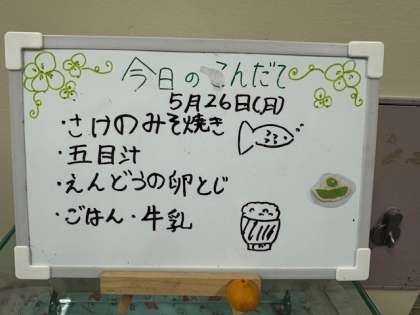 今日のこんだて
5月26日(月)
・さけのみそ焼き
・五目汁
・えんどうの卵とじ
・ごはん・牛乳